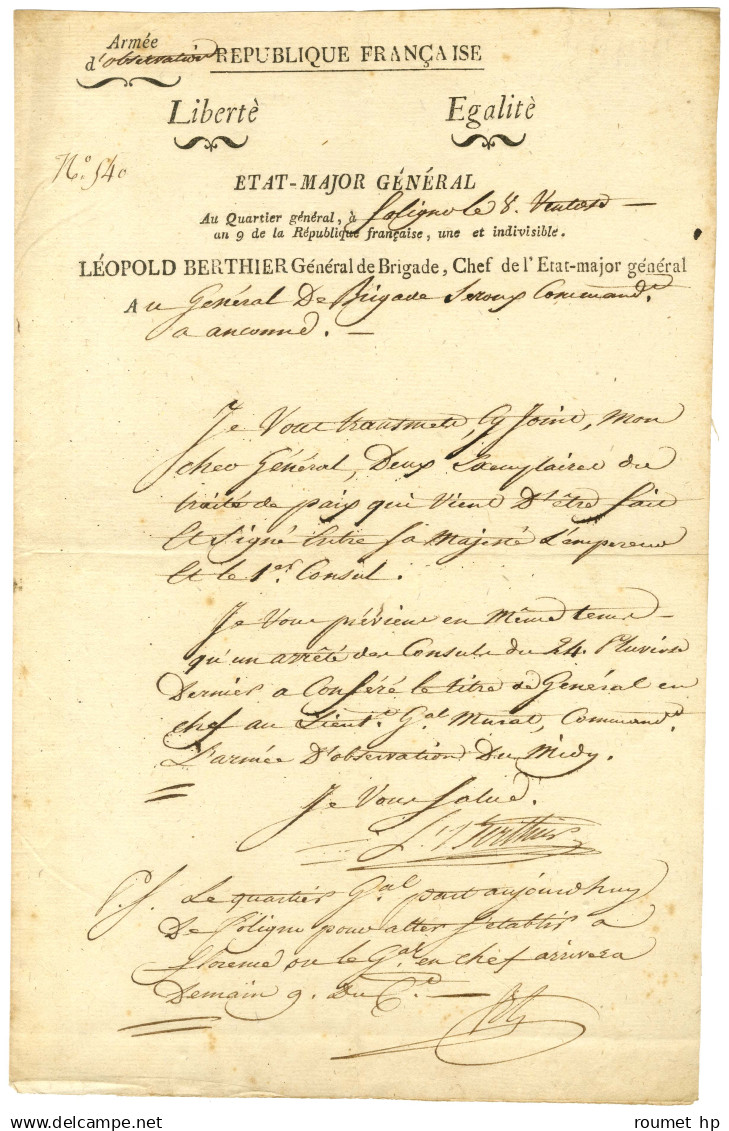 Armée
d'observation REPUBLIQUE FRANÇAISE
Libertè Egalitè
N.° 540
ETAT-MAJOR GÉNÉRAL
Au Quartier général, à foligno le 8. Ventose
an 9 de la République française, une et indivisible.
LÉOPOLD BERTHIER Général de Brigade, Chef de l'Etat-major général
Au Général De Brigade Seroux Command.t
a anconne.
Je Vous transmets, Cy Joint, mon
cher Général, Deux Exemplaires du
traité de paix qui Vient D'être fait
Et Signé Entre Sa Majesté L'empereur
Et le 1.er Consul.
Je Vous préviens en même tems
qu'un arrêté des Consuls du 24. Pluviose
Dernier a Conféré le titre de Général en
chef au Lieut.t G.al Murat, Command.t
L'armée D'observation Du Midy.
Je Vous Salue.
L. Berthier
P.S. Le quartier G.al part aujourdhuy
De foligno pour aller s'établir a
florence ou le G.al en chef arrivera
Demain 9. Du C.t
roumet hp